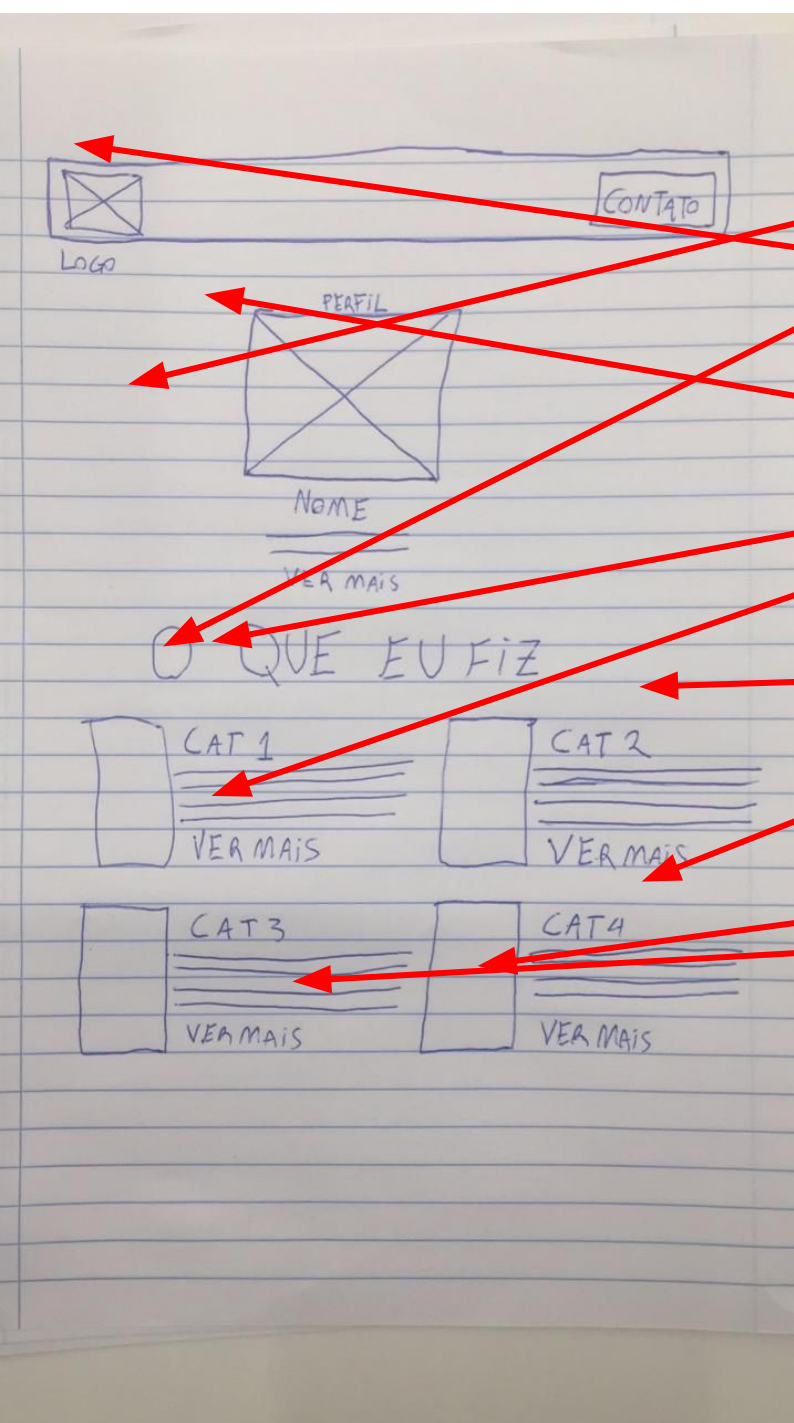 CONTATO
LOGO
PERFIL
NOME
VER MAIS
O QUE EU FIZ
CAT 1 CAT 2
VER MAIS VER MAIS
CAT 3 CAT 4
VER MAIS VER MAIS